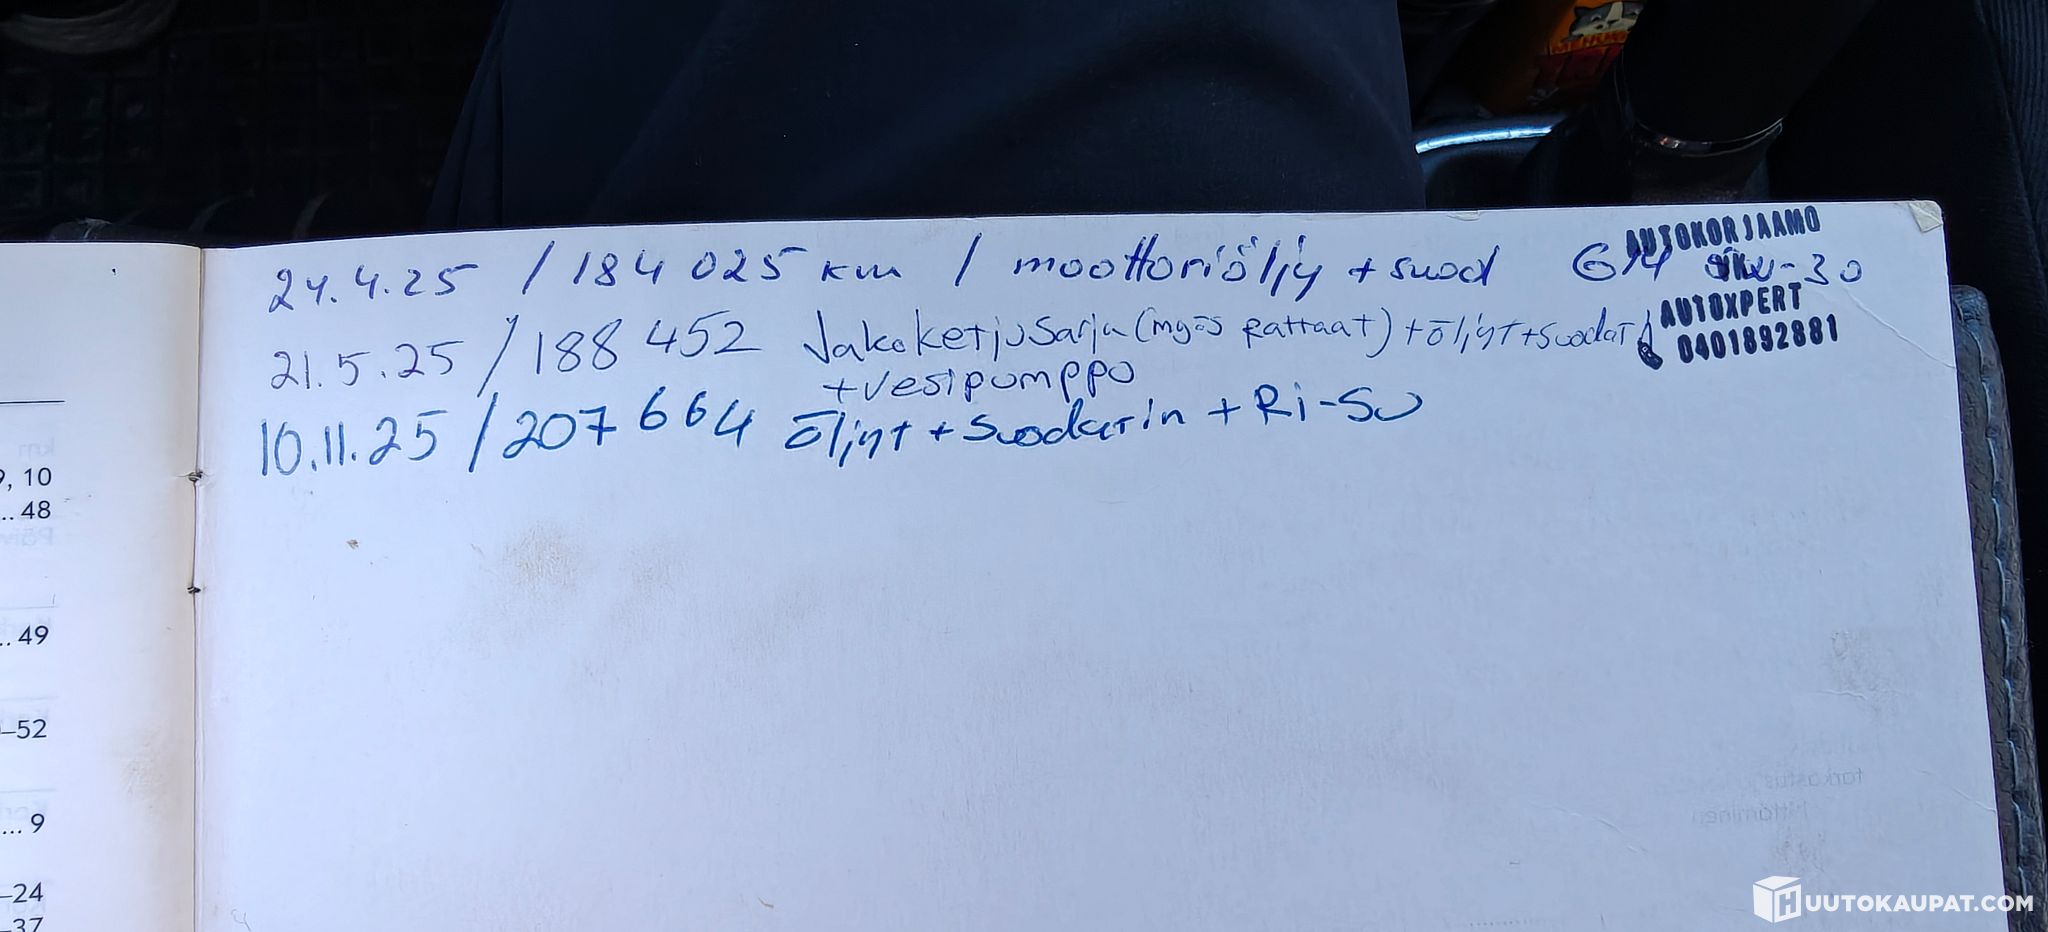 24.4.25 / 184 025 km / moottoriöljy + suod GM 5W-30
AUTOKORJAAMO
AUTOXPERT
0401892881
21.5.25 / 188 452 Jakoketjusarja (myös rattaat) + öljyt + suodatin
+ vesipumppo
10.11.25 / 207 664 öljyt + suodatin + Ri-Su
9, 10
.. 48
.. 49
–52
... 9
–24
–37
HUUTOKAUPAT.COM